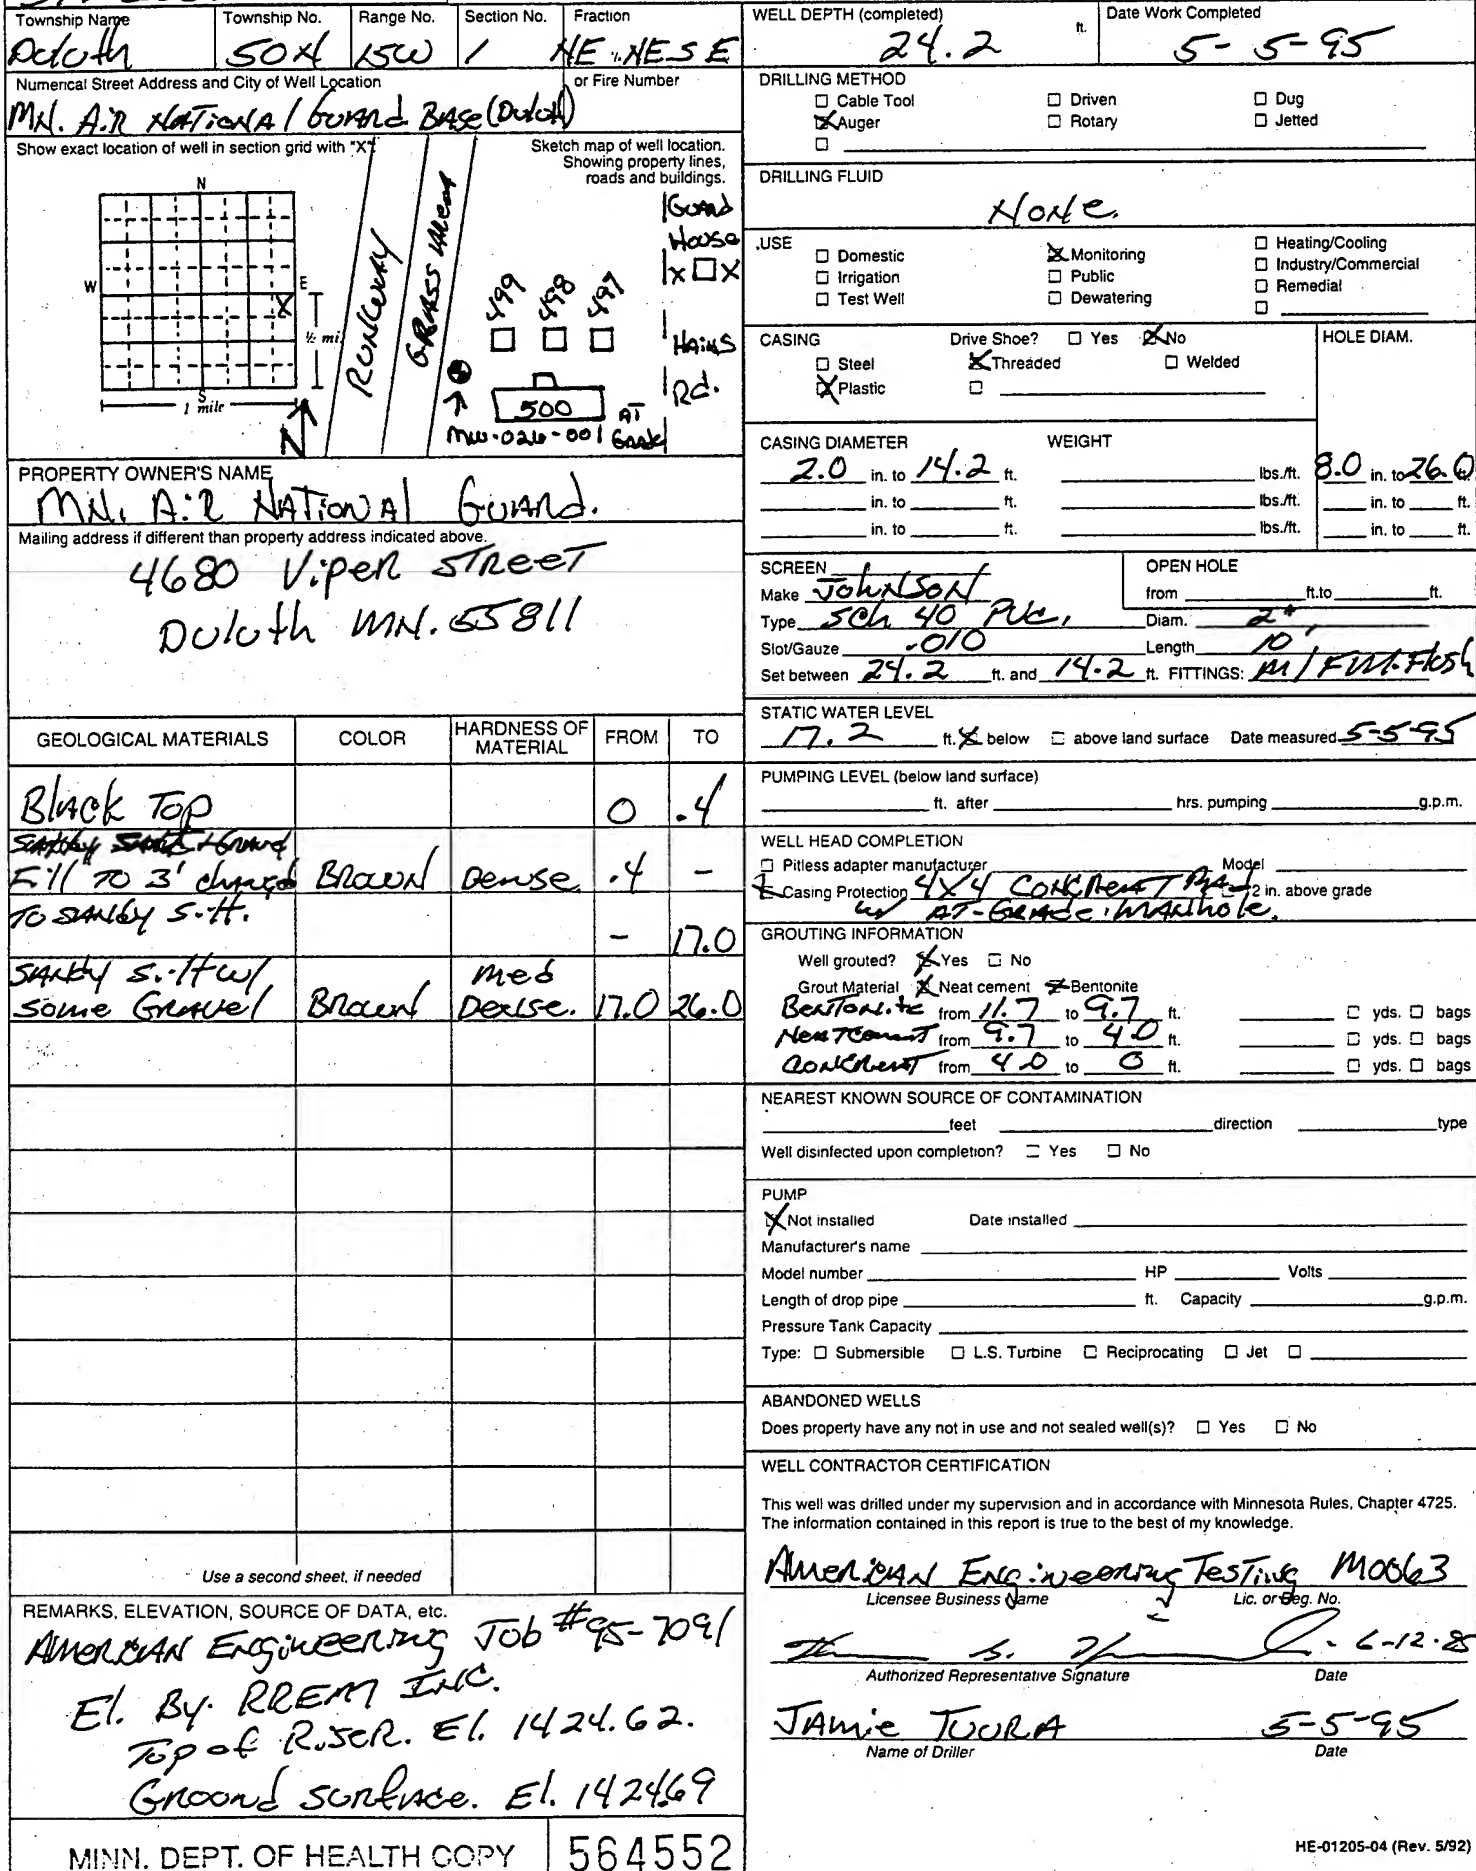 Township Name Township No. Range No. Section No. Fraction
Duluth 50N 15W 1 NE NE SE
Numerical Street Address and City of Well Location or Fire Number
MN. Air National Guard Base (Duluth)
Show exact location of well in section grid with "X".
Sketch map of well location.
Showing property lines,
roads and buildings.
N
W
E
S
½ mi.
1 mile
N
Runway
Grass Area
499 498 497
500
MW-026-001
AT Grade
Guard
House
X X
Hains
Rd.
PROPERTY OWNER'S NAME
MN. Air National Guard.
Mailing address if different than property address indicated above.
4680 Viper Street
Duluth MN. 55811
GEOLOGICAL MATERIALS COLOR HARDNESS OF MATERIAL FROM TO
Black Top 0 .4
Fill To 3' changed Brown Dense. .4 -
To Sandy Silt. - 17.0
Sandy Silt w/ Med
some Gravel Brown Dense. 17.0 26.0
Use a second sheet, if needed
REMARKS, ELEVATION, SOURCE OF DATA, etc.
American Engineering Job #95-7091
El. By. RREM INC.
Top of Riser. El. 1424.62.
Ground Surface. El. 1424.69
MINN. DEPT. OF HEALTH COPY 564552
WELL DEPTH (completed) Date Work Completed
24.2 ft. 5-5-95
DRILLING METHOD
Cable Tool Driven Dug
Auger Rotary Jetted
DRILLING FLUID
None.
USE
Domestic Monitoring Heating/Cooling
Irrigation Public Industry/Commercial
Test Well Dewatering Remedial
CASING Drive Shoe? Yes No HOLE DIAM.
Steel Threaded Welded
Plastic
CASING DIAMETER WEIGHT
2.0 in. to 14.2 ft. lbs./ft. 8.0 in. to 26.0 ft.
in. to ft. lbs./ft. in. to ft.
in. to ft. lbs./ft. in. to ft.
SCREEN OPEN HOLE
Make Johnson from ft. to ft.
Type Sch 40 PVC. Diam. 2"
Slot/Gauze .010 Length 10'
Set between 24.2 ft. and 14.2 ft. FITTINGS: M/FM. Flush
STATIC WATER LEVEL
17.2 ft. below above land surface Date measured 5-5-95
PUMPING LEVEL (below land surface)
ft. after hrs. pumping g.p.m.
WELL HEAD COMPLETION
Pitless adapter manufacturer Model
Casing Protection 4x4 Concrent Pad 12 in. above grade
w/ AT-Grade Manhole.
GROUTING INFORMATION
Well grouted? Yes No
Grout Material Neat cement Bentonite
Bentonite from 11.7 to 9.7 ft. yds. bags
Neat Cement from 9.7 to 4.0 ft. yds. bags
Concrent from 4.0 to 0 ft. yds. bags
NEAREST KNOWN SOURCE OF CONTAMINATION
feet direction type
Well disinfected upon completion? Yes No
PUMP
Not installed Date installed
Manufacturer's name
Model number HP Volts
Length of drop pipe ft. Capacity g.p.m.
Pressure Tank Capacity
Type: Submersible L.S. Turbine Reciprocating Jet
ABANDONED WELLS
Does property have any not in use and not sealed well(s)? Yes No
WELL CONTRACTOR CERTIFICATION
This well was drilled under my supervision and in accordance with Minnesota Rules, Chapter 4725.
The information contained in this report is true to the best of my knowledge.
American Engineering Testing M0063
Licensee Business Name Lic. or Reg. No.
6-12-95
Authorized Representative Signature Date
Jamie Tuura 5-5-95
Name of Driller Date
HE-01205-04 (Rev. 5/92)